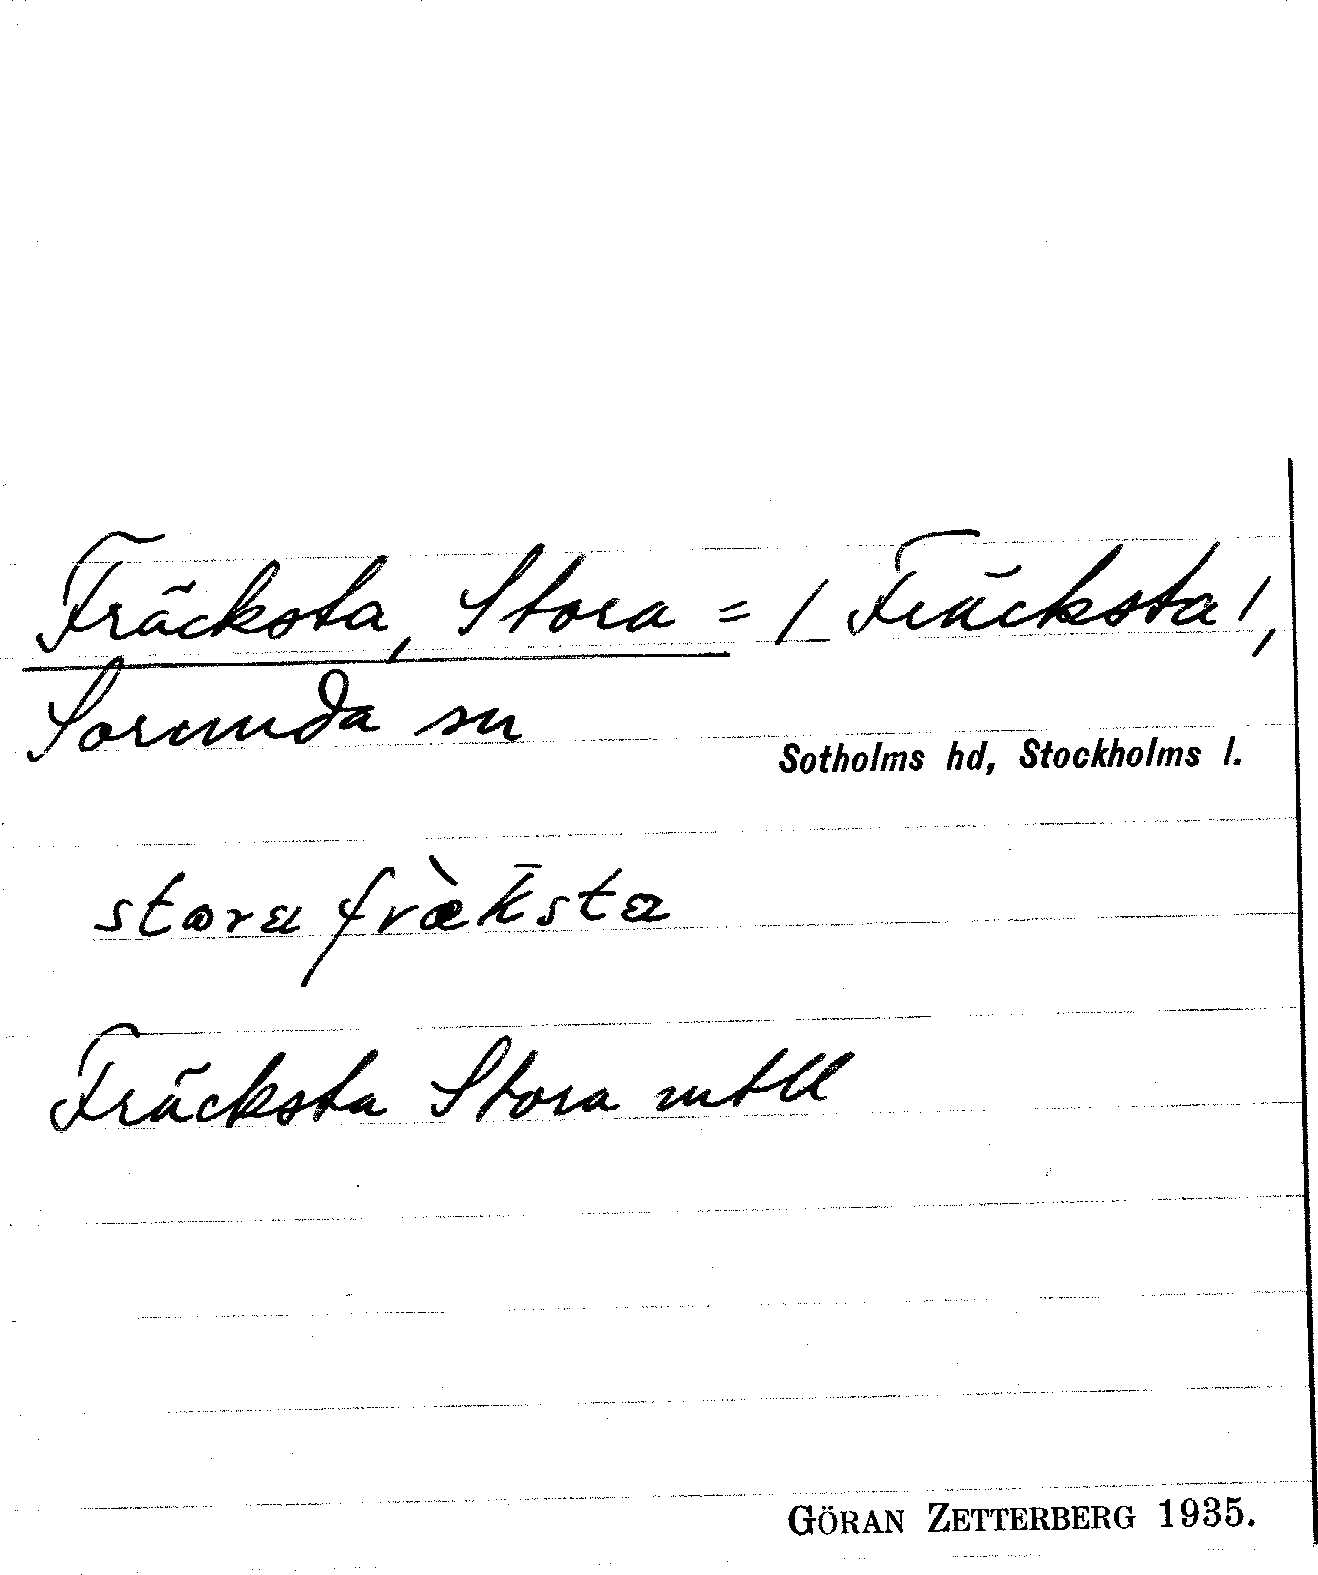 Fräcksta, Stora = / Fräcksta/,
Sorunda sn
Sotholms hd, Stockholms l.
stora frɛ̀k̄sta
Fräcksta Stora mtll
GÖRAN ZETTERBERG 1935.